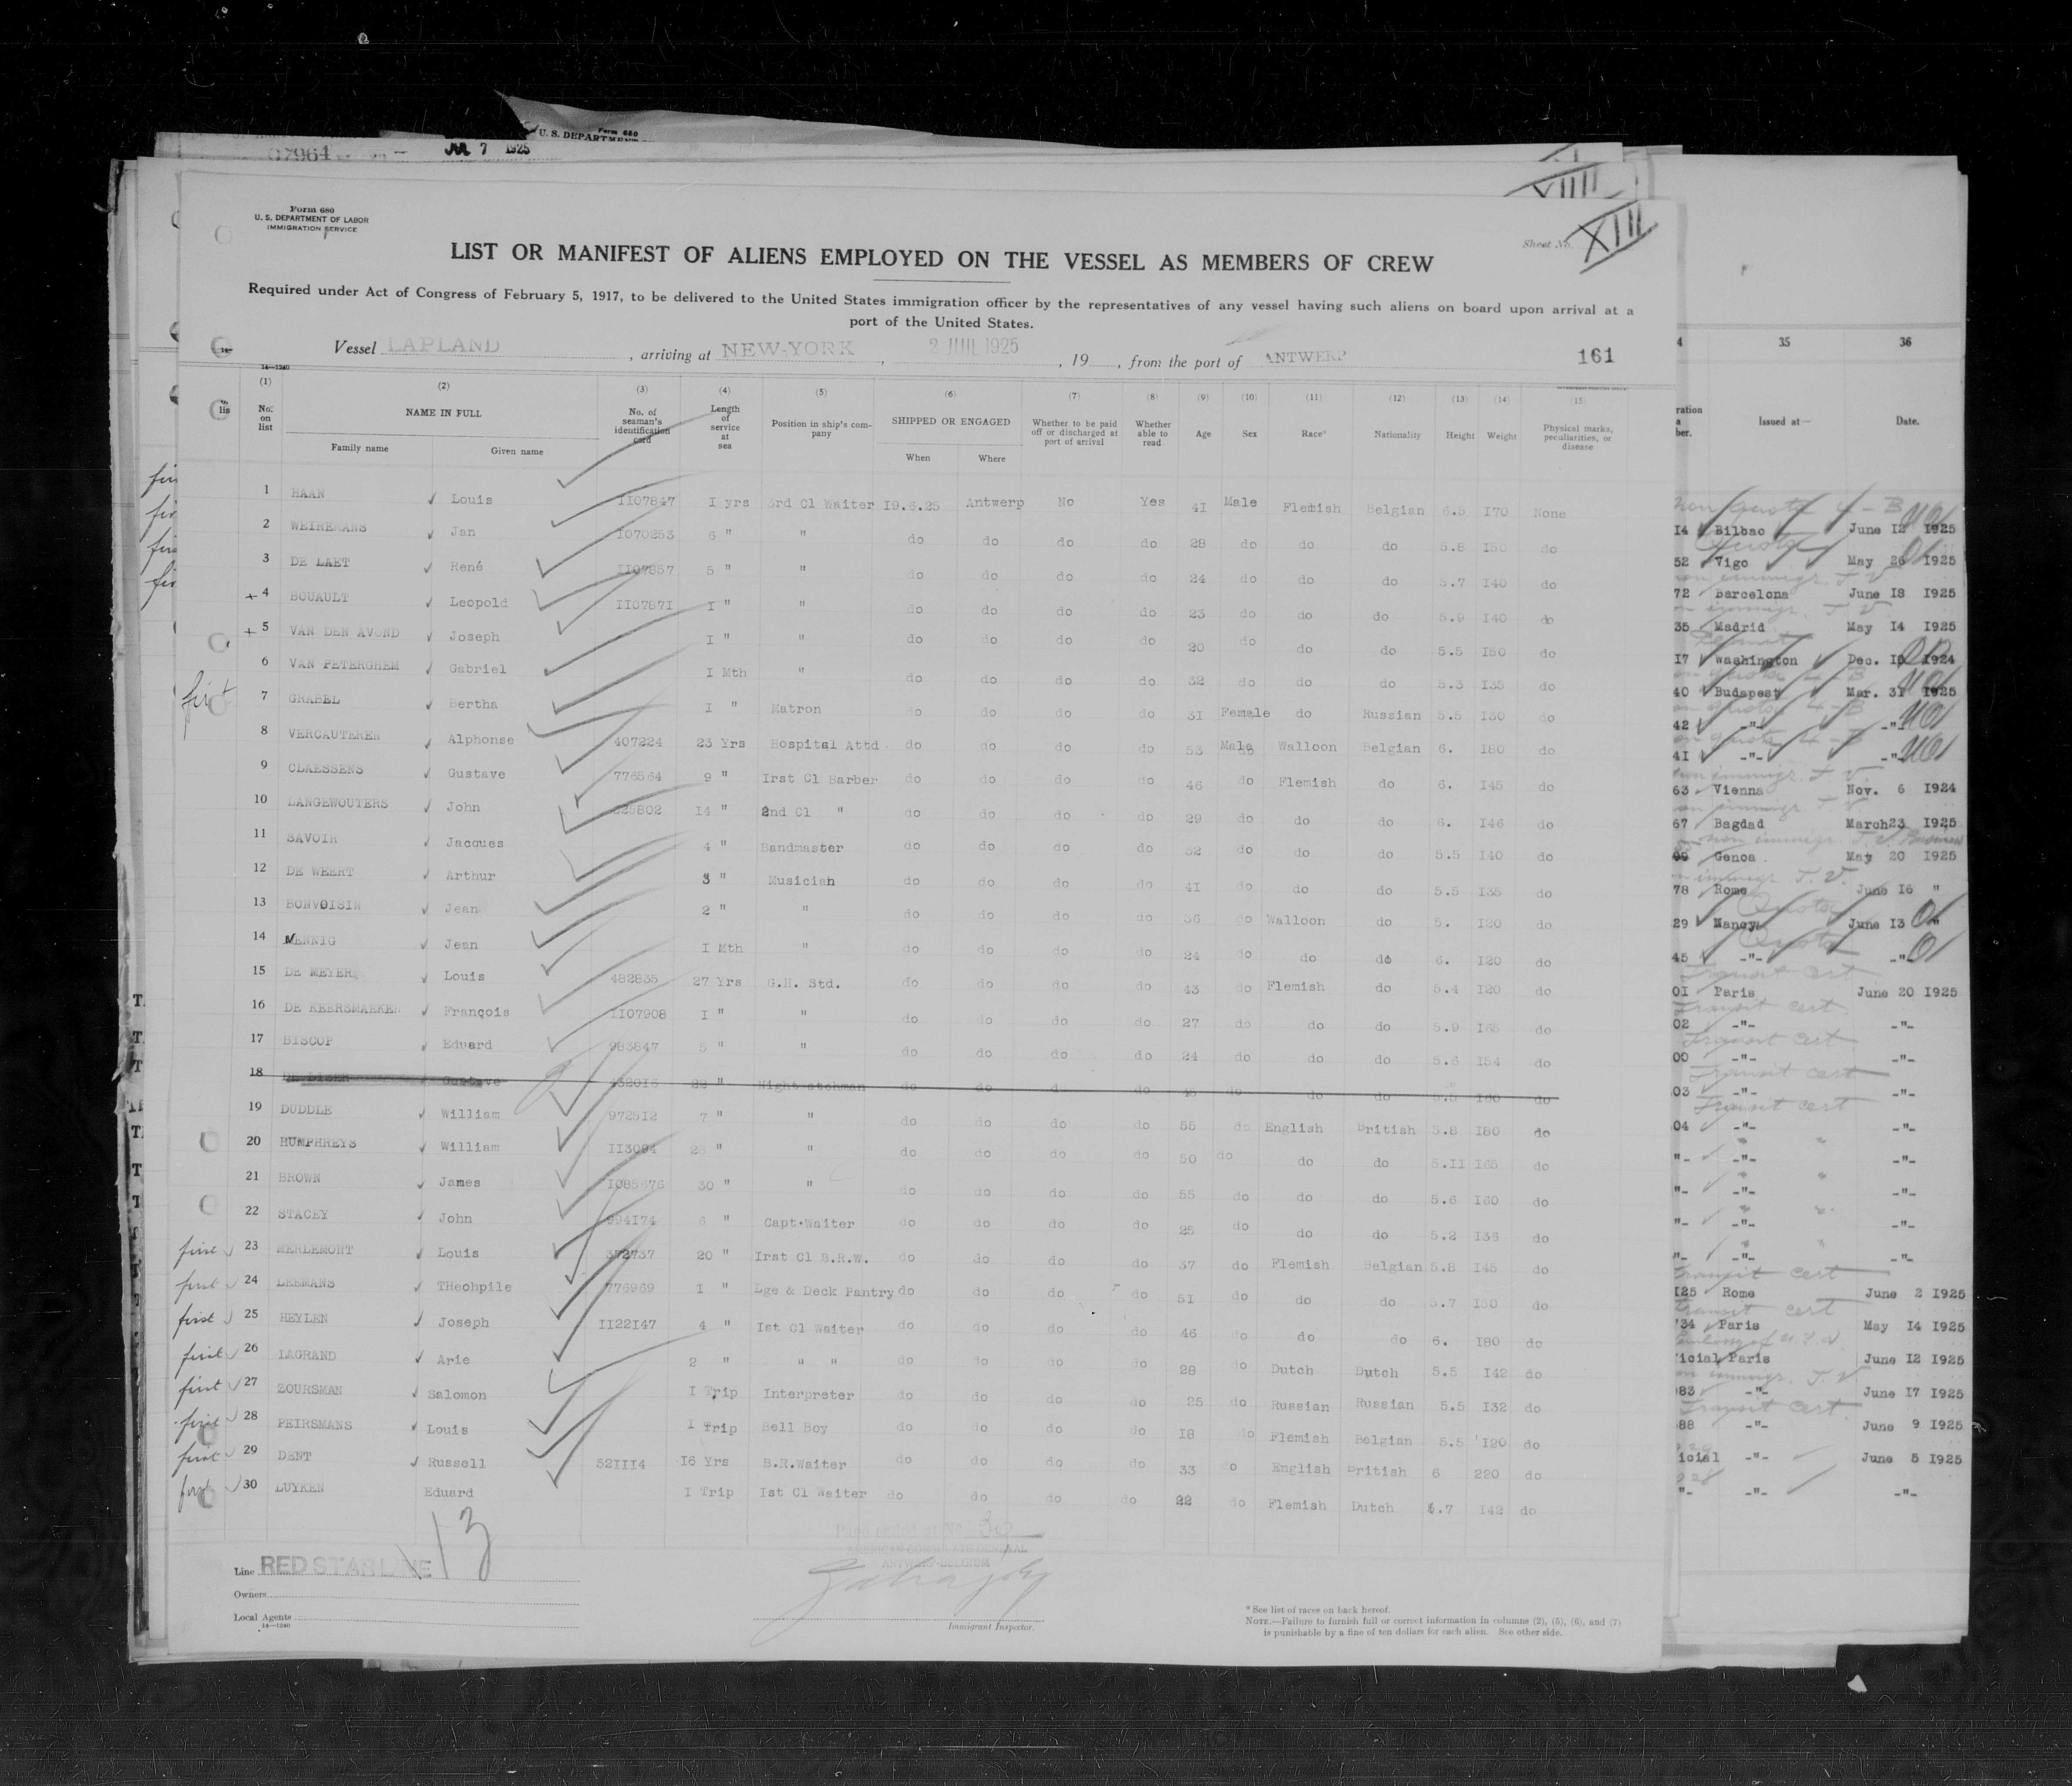 07964
JUL 7 1925
Form 680
U. S. DEPARTMENT
VIIII
Form 680
U. S. DEPARTMENT OF LABOR
IMMIGRATION SERVICE
Sheet No. XIII
LIST OR MANIFEST OF ALIENS EMPLOYED ON THE VESSEL AS MEMBERS OF CREW
Required under Act of Congress of February 5, 1917, to be delivered to the United States immigration officer by the representatives of any vessel having such aliens on board upon arrival at a
port of the United States.
Vessel LAPLAND , arriving at NEW-YORK , 2 JUIL 1925 , 19 , from the port of ANTWERP 161
14—1240
(1) (2) (3) (4) (5) (6) (7) (8) (9) (10) (11) (12) (13) (14) (15)
No. on list NAME IN FULL Family name Given name No. of seaman's identification card Length of service at sea Position in ship's company SHIPPED OR ENGAGED When Where Whether to be paid off or discharged at port of arrival Whether able to read Age Sex Race* Nationality Height Weight Physical marks, peculiarities, or disease
1 HAAN Louis II07847 I yrs 3rd Cl Waiter I9.6.25 Antwerp No Yes 4I Male Flemish Belgian 6.5 I70 None
2 WEIREMANS Jan I070253 6 " " do do do do 28 do do do 5.8 I50 do
3 DE LAET René II07857 5 " " do do do do 24 do do do 5.7 I40 do
+ 4 BOUAULT Leopold II0787I I " " do do do do 23 do do do 5.9 I40 do
+ 5 VAN DEN AVOND Joseph I " " do do do do 20 do do do 5.5 I50 do
6 VAN PETERGHEM Gabriel I Mth " do do do do 32 do do do 5.3 I35 do
first 7 GRABEL Bertha I " Matron do do do do 3I Female do Russian 5.5 I30 do
8 VERCAUTEREN Alphonse 407224 23 Yrs Hospital Attd do do do do 53 Male Walloon Belgian 6. I80 do
9 CLAESSENS Gustave 776564 9 " Irst Cl Barber do do do do 46 do Flemish do 6. I45 do
10 LANGEWOUTERS John 625802 I4 " 2nd Cl " do do do do 29 do do do 6. I46 do
11 SAVOIR Jacques 4 " Bandmaster do do do do 32 do do do 5.5 I40 do
12 DE WEERT Arthur 3 " Musician do do do do 4I do do do 5.5 I35 do
13 BONVOISIN Jean 2 " " do do do do 36 do Walloon do 5. I20 do
14 WENNIG Jean I Mth " do do do do 24 do do do 6. I20 do
15 DE MEYER Louis 482835 27 Yrs G.H. Std. do do do do 43 do Flemish do 5.4 I20 do
16 DE KEERSMAEKER François II07908 I " " do do do do 27 do do do 5.9 I65 do
17 BISCOP Eduard 983847 5 " " do do do do 24 do do do 5.6 I54 do
18 Gustave 432016 do do do do do do do 5.5 I60 do
19 DUDDLE William 9725I2 7 " " do do do do 55 do English British 5.8 I80 do
20 HUMPHREYS William II3094 28 " " do do do do 50 do do do 5.II I65 do
21 BROWN James I085676 30 " " do do do do 55 do do do 5.6 I60 do
22 STACEY John 994I74 6 " Capt.Waiter do do do do 25 do do do 5.2 I36 do
first 23 MERLEMONT Louis 372737 20 " Irst Cl B.R.W. do do do do 37 do Flemish Belgian 5.8 I45 do
first 24 LEEMANS THeohpile 776969 I " Lge & Deck Pantry do do do do 5I do do do 5.7 I50 do
first 25 HEYLEN Joseph II22I47 4 " Ist Cl Waiter do do do do 46 do do do 6. I80 do
first 26 LAGRAND Arie 2 " " " do do do do 28 do Dutch Dutch 5.5 I42 do
first 27 ZOURSMAN Salomon I Trip Interpreter do do do do 25 do Russian Russian 5.5 I32 do
first 28 PEIRSMANS Louis I Trip Bell Boy do do do do I8 do Flemish Belgian 5.5 I20 do
first 29 DENT Russell 52III4 I6 Yrs B.R.Waiter do do do do 33 do English British 6 220 do
first 30 LUYKEN Eduard I Trip Ist Cl Waiter do do do do 22 do Flemish Dutch 5.7 I42 do
13
Page ended at No 30
AMERICAN CONSULATE GENERAL
ANTWERP-BELGIUM
Line RED STAR LINE
Owners
Local Agents
14—1240
Immigrant Inspector.
* See list of races on back hereof.
NOTE.—Failure to furnish full or correct information in columns (2), (5), (6), and (7)
is punishable by a fine of ten dollars for each alien. See other side.
35 36
Issued at— Date.
non quota 4-B
I4 Bilbao June I2 I925
Quota
52 Vigo May 26 I925
72 Barcelona June I8 I925
35 Madrid May I4 I925
I7 Washington Dec. I0 I924
40 Budapest Mar. 3I I925
42 -"- -"-
4I -"- -"-
63 Vienna Nov. 6 I924
67 Bagdad March23 I925
99 Genoa May 20 I925
78 Rome June I6 "
Quota
29 Nancy June I3 "
Quota
45 -"- -"-
Transit cert
01 Paris June 20 I925
Transit cert
02 -"- -"-
Transit cert
00 -"- -"-
Transit cert
03 -"- -"-
Transit cert
04 -"- -"-
"- -"- -"-
"- -"- -"-
"- -"- -"-
"- -"- -"-
Transit cert
I25 Rome June 2 I925
Transit cert
34 Paris May I4 I925
icial Paris June I2 I925
83 -"- June I7 I925
Transit cert
88 -"- June 9 I925
icial -"- June 5 I925
"- -"- -"-